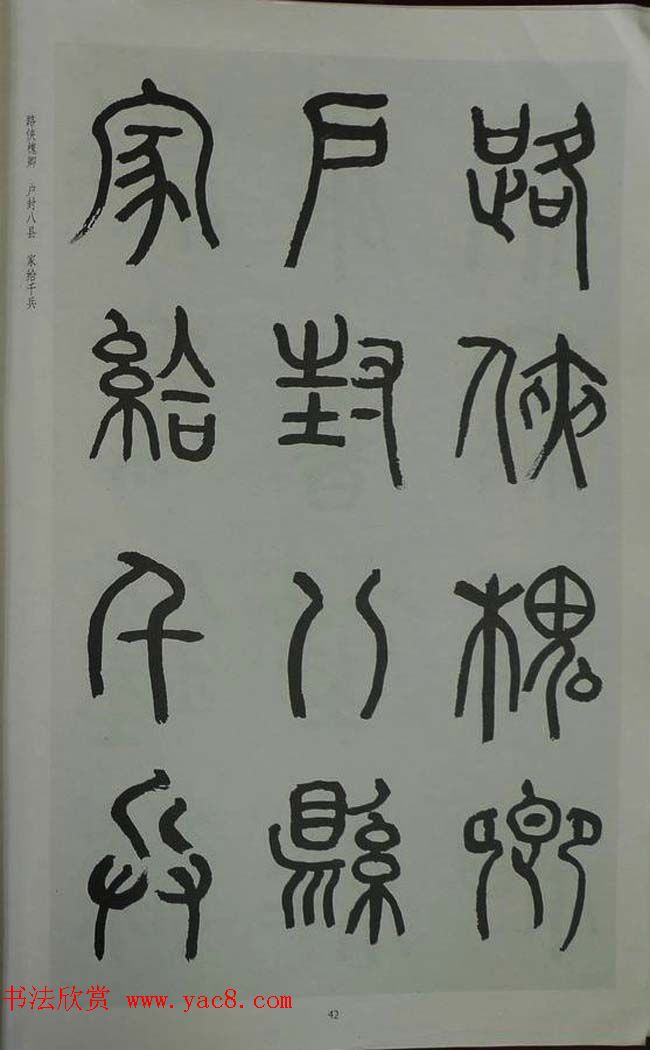 路俠槐卿
户封八縣
家給千兵
路侠槐卿 户封八县 家给千兵
书法欣赏 www.yac8.com
42